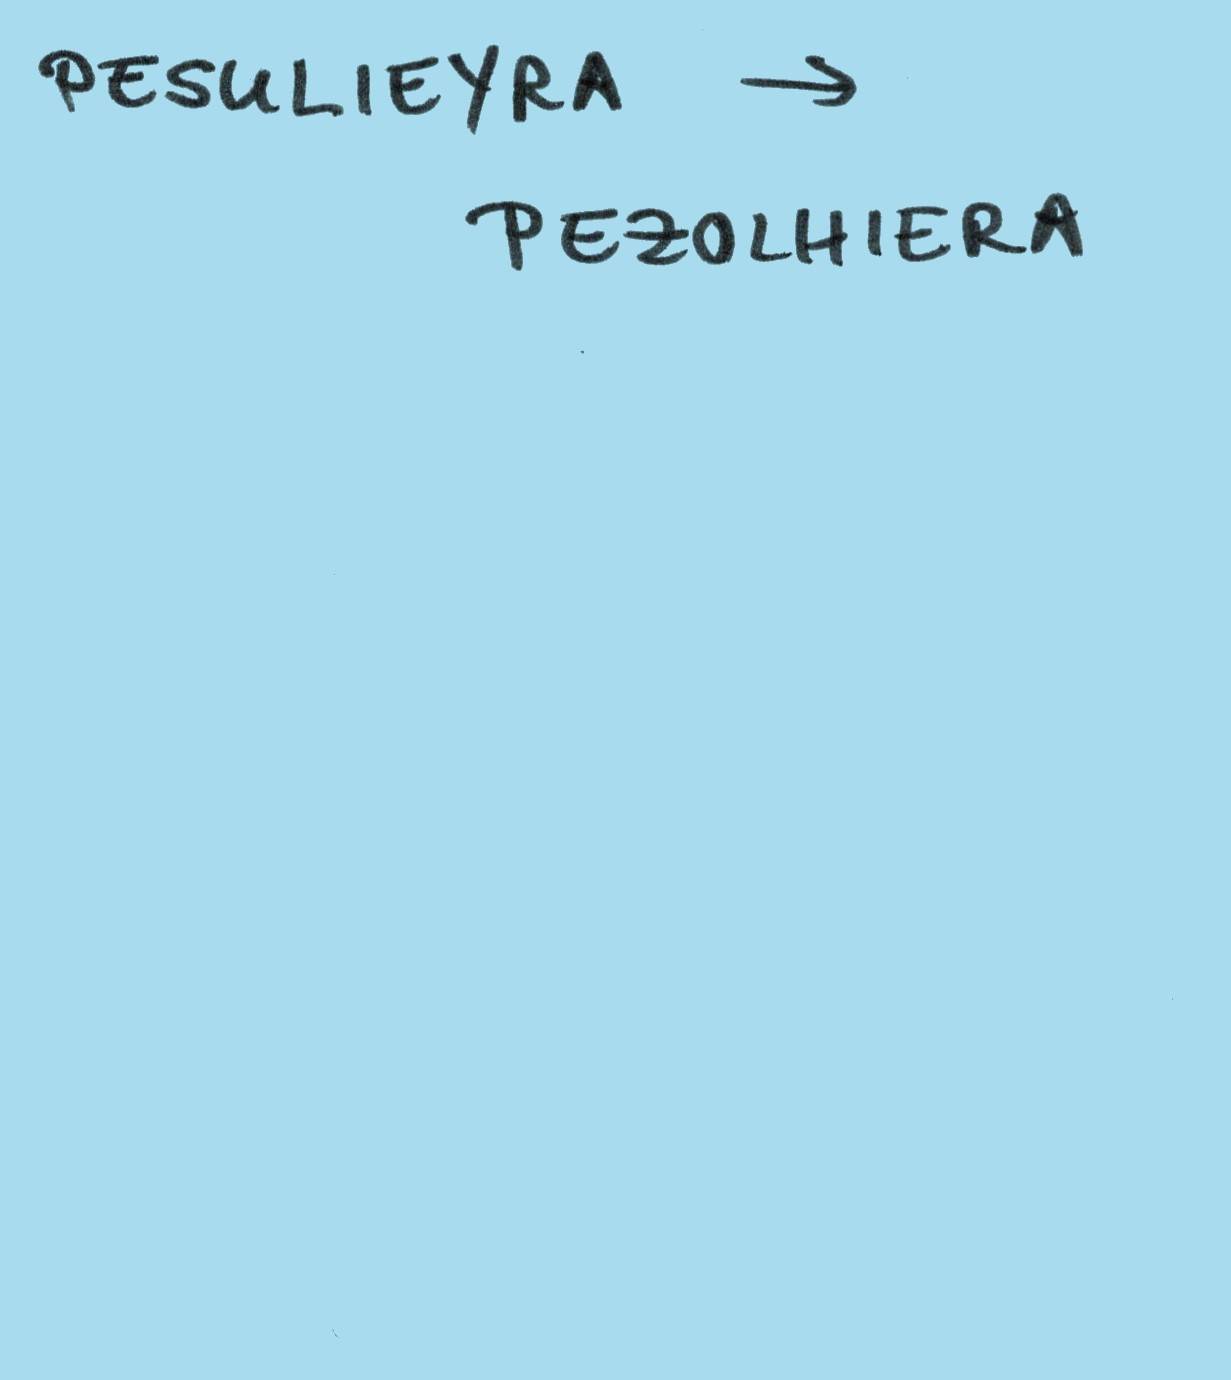 PESULIEYRA →
PEZOLHIERA